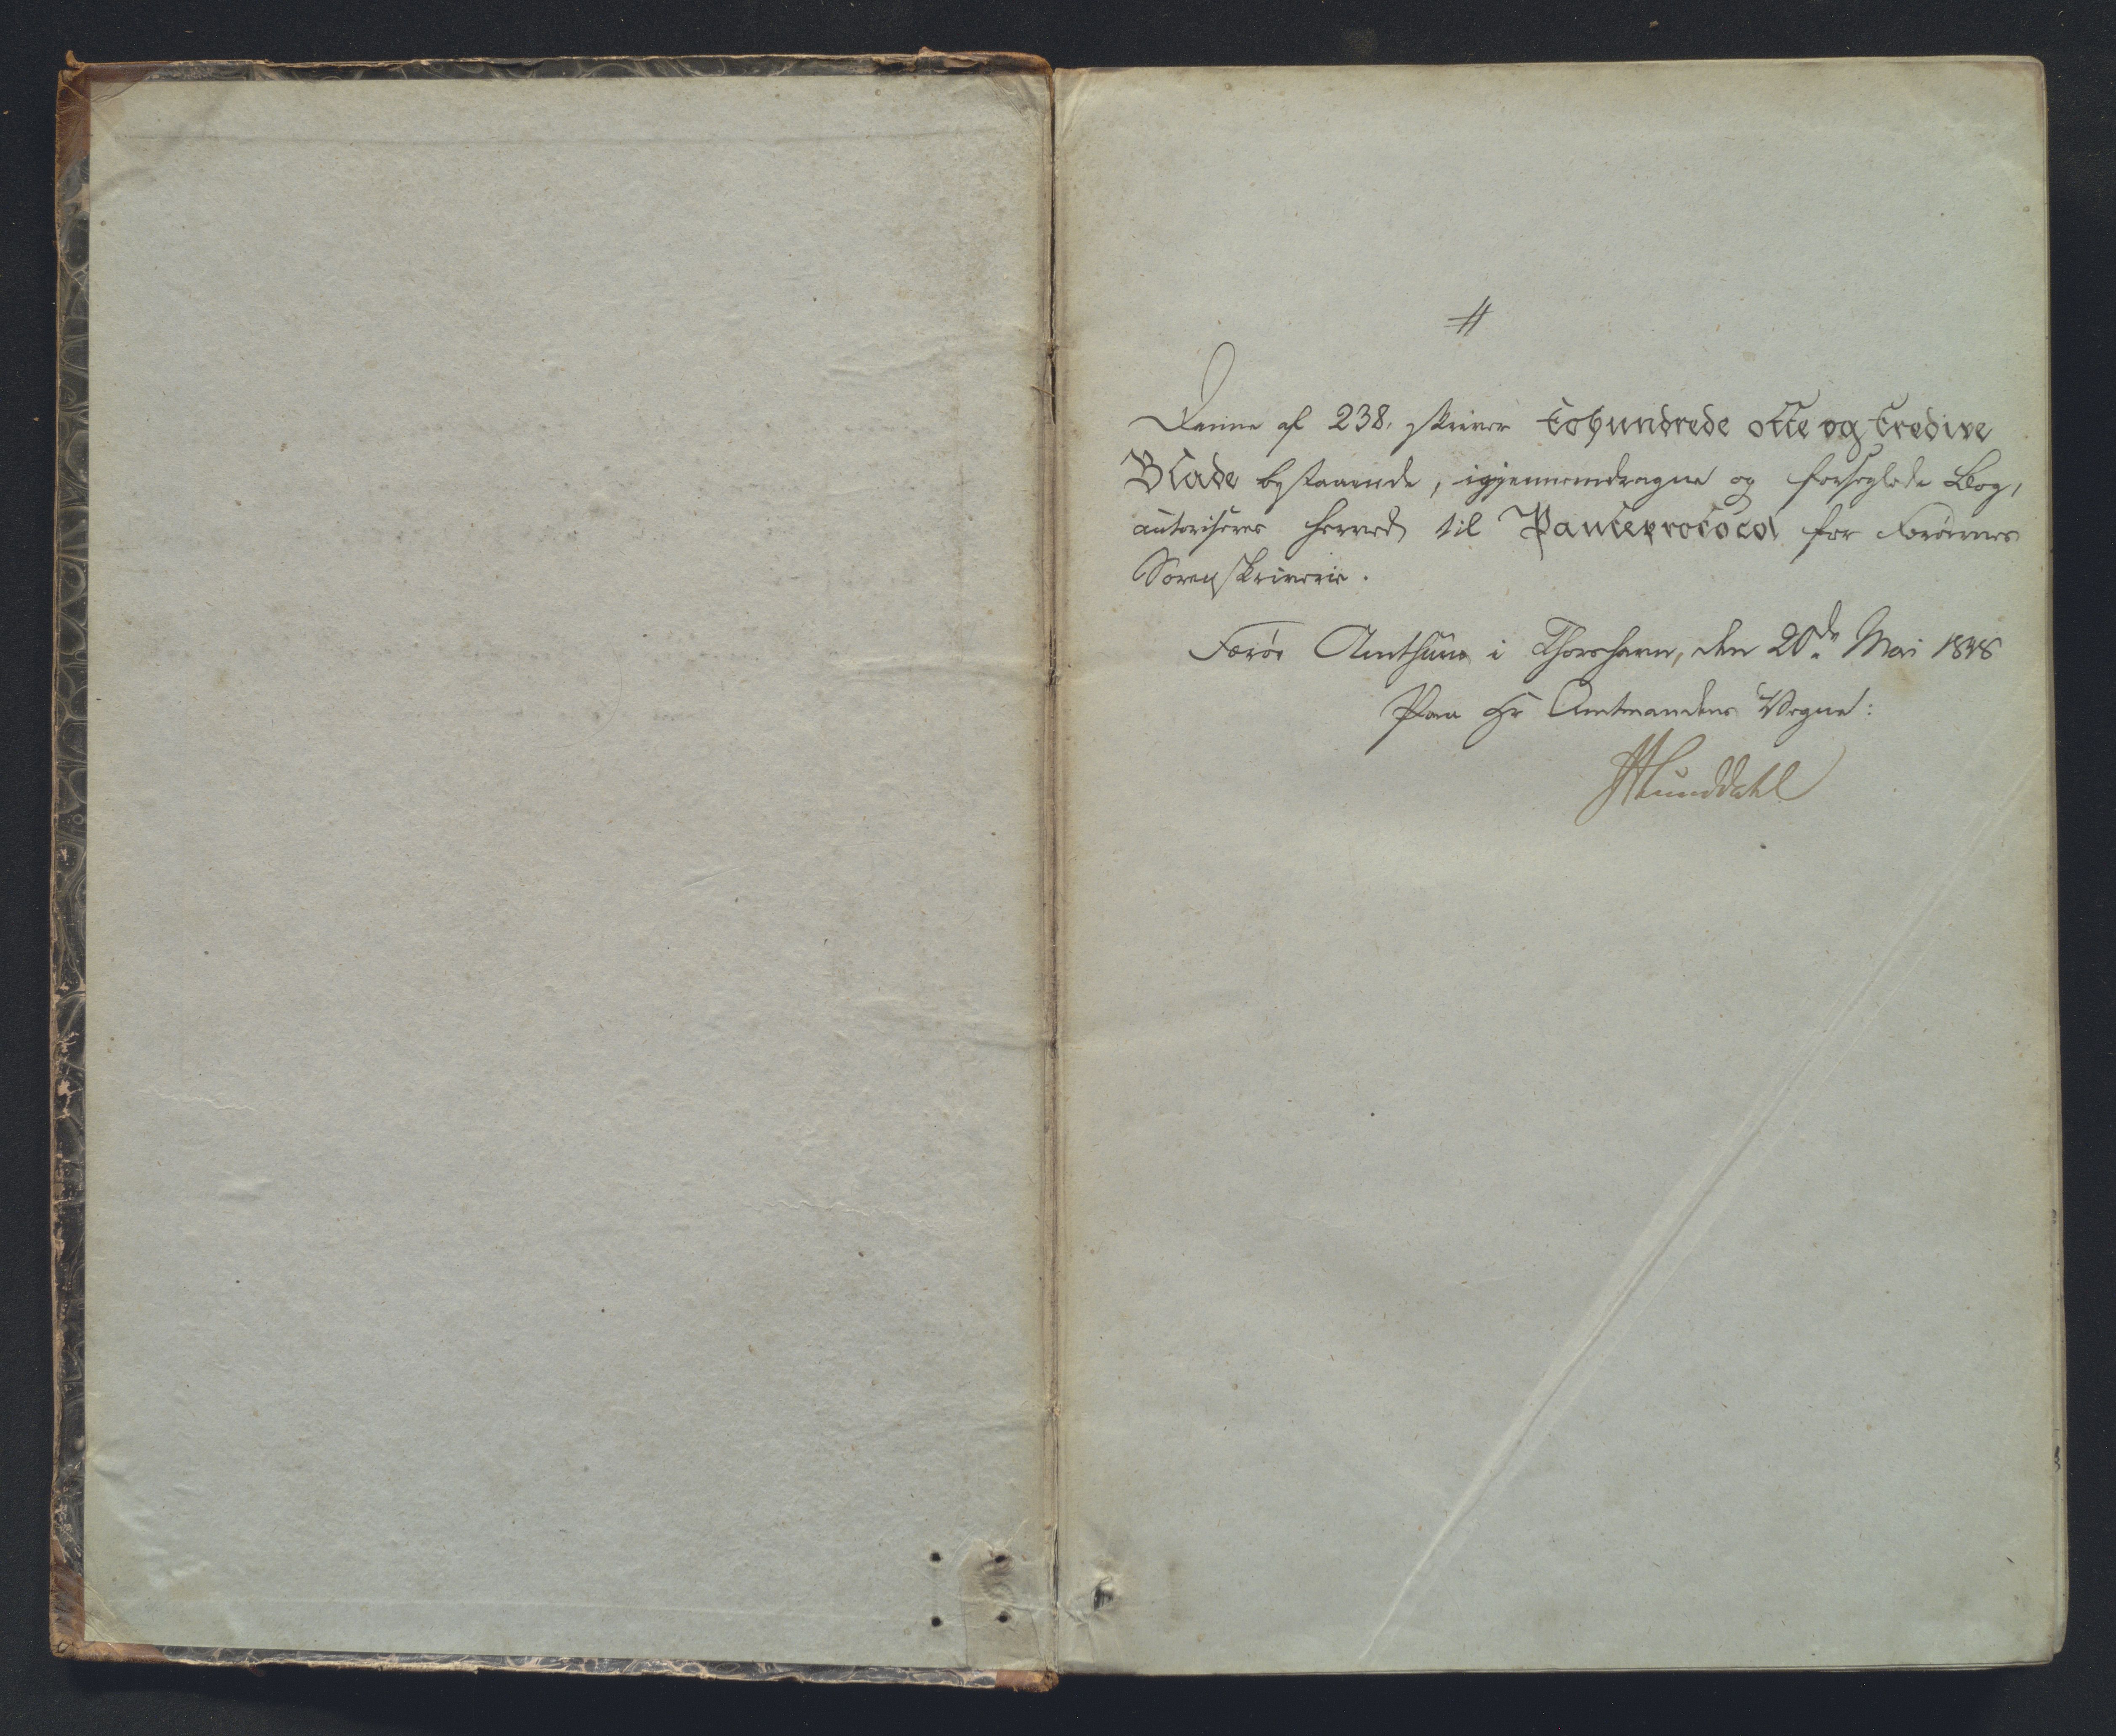 #
Denne af 238, skriver tohundrede otte og tredive
Blade bestaaende, igjennemdragne og forseglede Bog,
autoriseres herved til Panteprotocol for Færøernes
Sorenskriverie.
Færøe Amthuus i Thorshavn, den 20de Mai 1848
Paa Hr Amtmandens Vegne:
HLunddahl